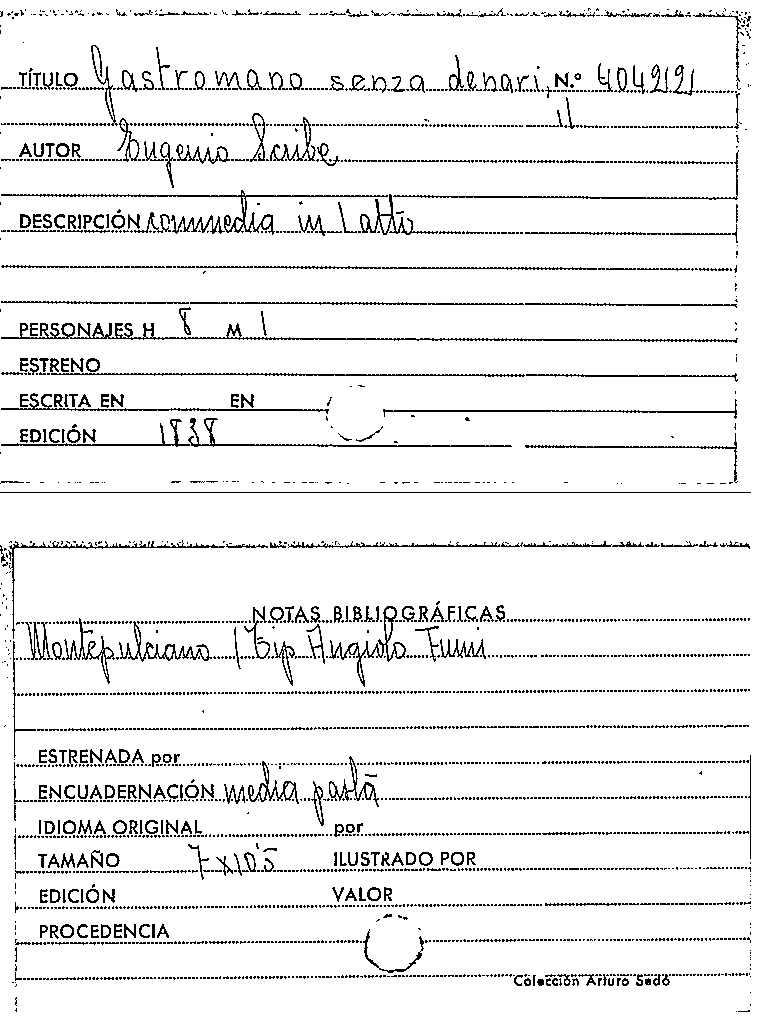 TÍTULO Gastromano senza denari, N.º
il
AUTOR Eugenio Scribe
DESCRIPCIÓN commedia in 1 atto
PERSONAJES H 8 M 1
ESTRENO
ESCRITA EN EN
EDICIÓN 1838
NOTAS BIBLIOGRÁFICAS
Montepulciano / Tip Angiolo Fumi
ESTRENADA por
ENCUADERNACIÓN media pasta
IDIOMA ORIGINAL por
TAMAÑO 7 x 10'5 ILUSTRADO POR
EDICIÓN VALOR
PROCEDENCIA
Colección Arturo Sedó